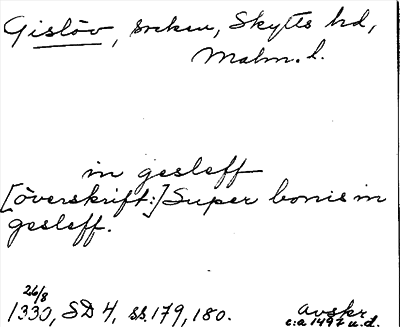 Gislöv, socken, Skytts hd,
Malm. l.
in gesleff
[överskrift:] Super bonis in
gesleff.
26/8
1330, SD 4, ss. 179, 180.
avskr.
c:a 1497 u.d.